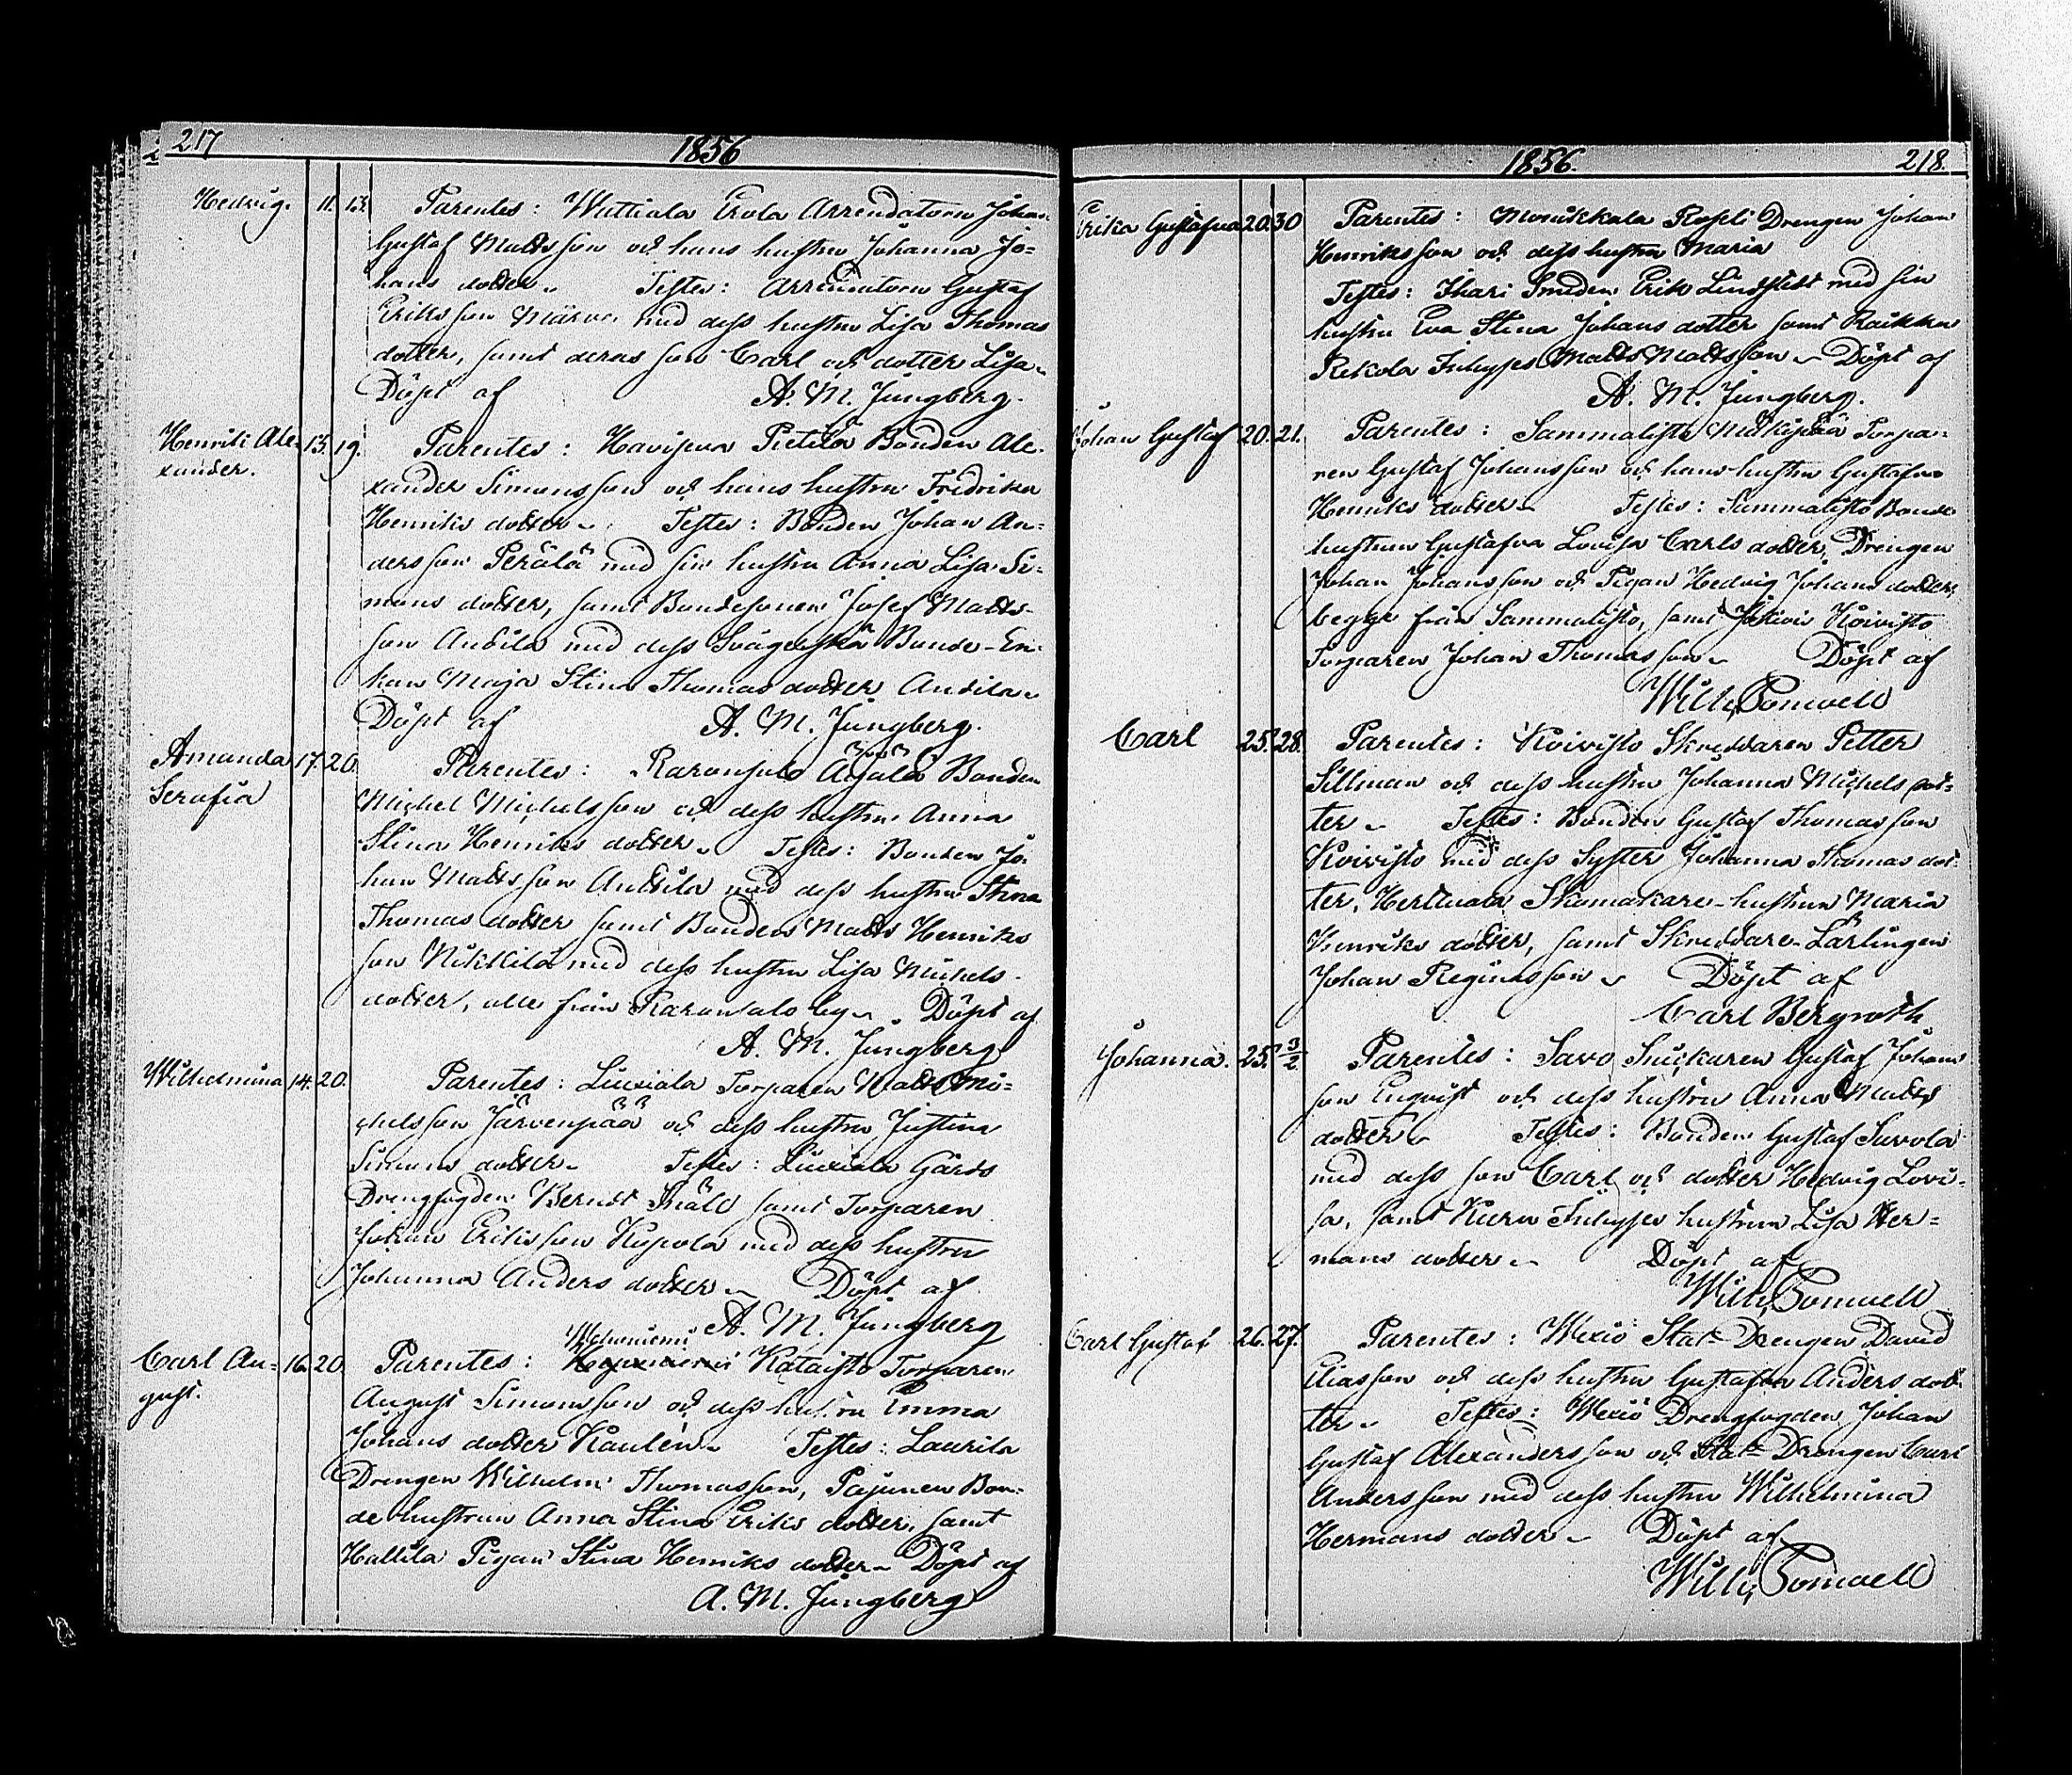 217 1856
Hedvig. 11. 13. Parentes: Wattiala Erola Arrendatorn Johan
Gustaf Mattsson och hans hustru Johanna Jo-
hans dotter. Testes: Arrendatorn Gustaf
Eriksson med dess hustru Lisa Thomas
dotter, samt deras son Carl och dotter Lisa.
Döpt af A. M. Jungberg.
Henrik Ale- 13. 19. Parentes: Havisewa Pietilä Bonden Ale-
xander. xander Simonsson och hans hustru Fredrika
Henriks dotter. Testes: Bonden Johan An-
dersson Perälä med sin hustru Anna Lisa Si-
mons dotter, samt Bondesonen Josef Matts-
son Anttila med dess Svägerska Bonde-En-
kan Maja Stina Thomas dotter Anttila.
Döpt af A. M. Jungberg.
Amanda 17. 20. Parentes: Raronsalo Äijälä Bonden
Serafia Michel Michelsson och dess hustru Anna
Stina Henriks dotter. Testes: Bonden Jo-
han Mattsson Anttila med dess hustru Stina
Thomas dotter samt Bonden Matts Henriks
son Nikkilä med dess hustru Lisa Michels
dotter, alle från Raronsalo by. Döpt af
A. M. Jungberg
Wilhelmina 14. 20. Parentes: Liuxiala Torparen Matts Mi-
chelsson Järvenpää och dess hustru Justina
Simons dotter. Testes: Liuxiala Gårds
Drengfogden Berndt Snäll samt Torparen
Johan Eriksson Kopola med dess hustru
Johanna Anders dotter. Döpt af
A. M. Jungberg
Wehoniemi
Carl Au- 16. 20. Parentes: Kataisto Torparen
gust. August Simonsson och dess hustru Emma
Johans dotter Kaulén. Testes: Laurila
Drengen Wilhelm Thomasson, Pajunen Bon-
de hustrun Anna Stina Eriks dotter, samt
Hallila Pigan Stina Henriks dotter. Döpt af
A. M. Jungberg
1856. 218.
Erika Gustafva 20. 30 Parentes: Drengen Johan
Henriksson och dess hustru Maria
Testes: Ihari Smeden Erik Lindstedt med sin
hustru Eva Stina Johans dotter samt Raikku
Rekola Inhyses Matts Mattsson. Döpt af
A. M. Jungberg.
Johan Gustaf 20. 21. Parentes: Sammalisto Mäkipää Torpa-
ren Gustaf Johansson och hans hustru Gustafva
Henriks dotter. Testes: Sammalisto Bonde
hustrun Gustafva Lovisa Carls dotter, Drengen
Johan Johansson och Pigan Hedvig Johans dotter,
begge från Sammalisto, samt Koivisto
Torparen Johan Thomasson. Döpt af
Wilh. Pomoell
Carl 25. 28. Parentes: Koivisto Skreddaren Petter
Sillman och dess hustru Johanna Michels dot-
ter. Testes: Bonden Gustaf Thomasson
Koivisto med dess Syster Johanna Thomas dot-
ter, Herttuala Skomakare-hustrun Maria
Henriks dotter, samt Skreddare-Lärlingen
Johan Reginasson. Döpt af
Carl Bergroth
Johanna. 25. 3/2. Parentes: Savo Snickaren Gustaf Johans
son Enqvist och dess hustru Anna Matts
dotter. Testes: Bonden Gustaf Savola
med dess son Carl och dotter Hedvig Lovi-
sa, samt Inhyses hustrun Lisa Her-
mans dotter. Döpt af
Wilh. Pomoell
Carl Gustaf 26. 27. Parentes: Wexiö Stat-Drengen David
Eliasson och dess hustru Gustafva Anders dot-
ter. Testes: Wexiö Drengfogden Johan
Gustaf Alexandersson och Stat-Drengen Carl
Andersson med dess hustru Wilhelmina
Hermans dotter. Döpt af
Wilh. Pomoell